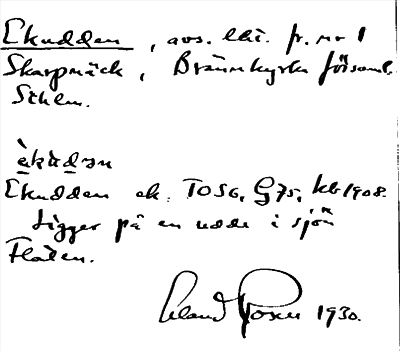 Ekudden, avs. lht. fr. nr 1
Skarpnäck, Brännkyrka församl.
Sthlm.
èkùdən
Ekudden ek. TOSG, G75, kb 1908.
Ligger på en udde i sjön
Flaten.
Erland Rosell 1930.